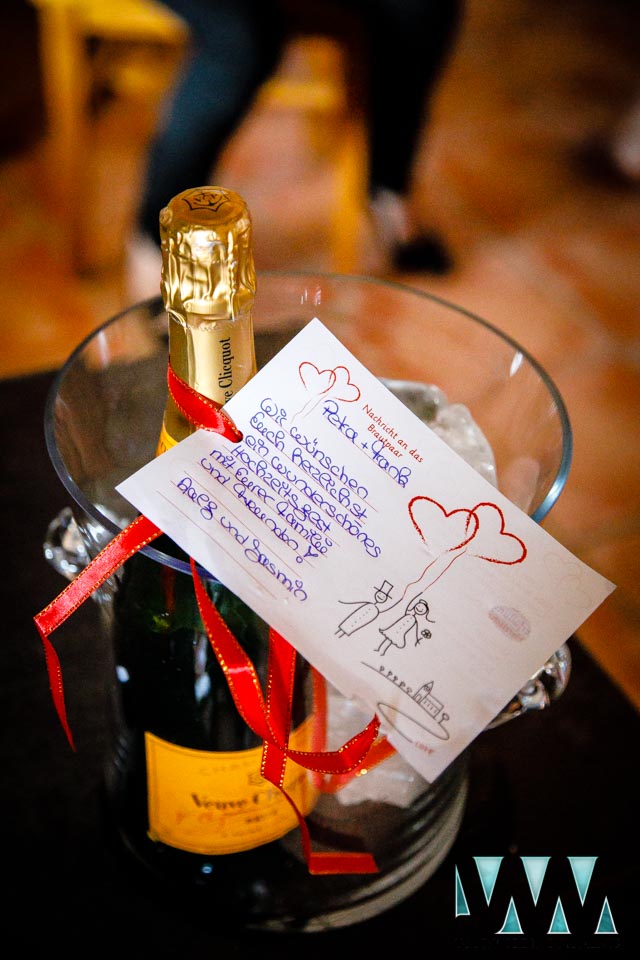 Veuve Clicquot
Nachricht an das
Brautpaar
Petra + Frank
Wir wünschen
Euch herzlichst
ein wunderschönes
Hochzeitsfest
mit Eurer Familie
und Freunden!
und Jasmin
LOVE
Veuve Cl